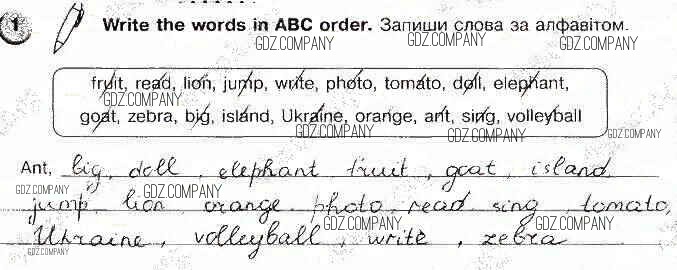 1 Write the words in ABC order. Запиши слова за алфавітом.
GDZ.COMPANY GDZ.COMPANY
fruit, read, lion, jump, write, photo, tomato, doll, elephant,
GDZ.COMPANY GDZ.COMPANY
goat, zebra, big, island, Ukraine, orange, ant, sing, volleyball
GDZ.COMPANY GDZ.COMPANY
Ant, big, doll, elephant fruit, goat, island,
GDZ.COMPANY GDZ.COMPANY GDZ.COMPANY
jump, lion orange photo, read sing, tomato,
Ukraine, volleyball, write, zebra
GDZ.COMPANY GDZ.COMPANY